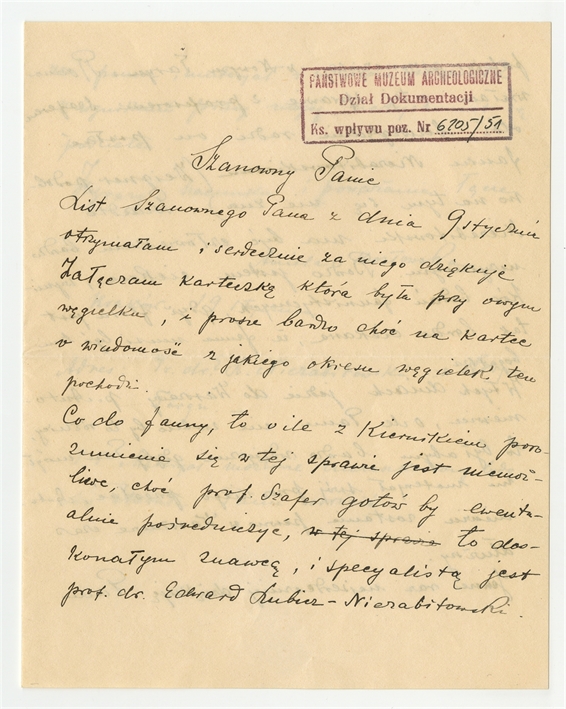 PAŃSTWOWE MUZEUM ARCHEOLOGICZNE
Dział Dokumentacji
Ks. wpływu poz. Nr 6205/51
Szanowny Panie
List Szanownego Pana z dnia 9 stycznia
otrzymałam i serdecznie za niego dziękuję
Załączam karteczką która była przy owym
węgielku, i proszę bardzo choć na kartce
o wiadomość z jakiego okresu węgielek ten
pochodzi.
Co do fauny, to o ile z Kiernikiem poro-
zumienie się w tej sprawie jest niemoż-
liwe, choć prof. Szafer gotów by ewentu-
alnie pośredniczyć, w tej sprawie to dos-
konałym znawcą, i specyalistą jest
prof. dr. Edward Lubicz-Niezabitowski.